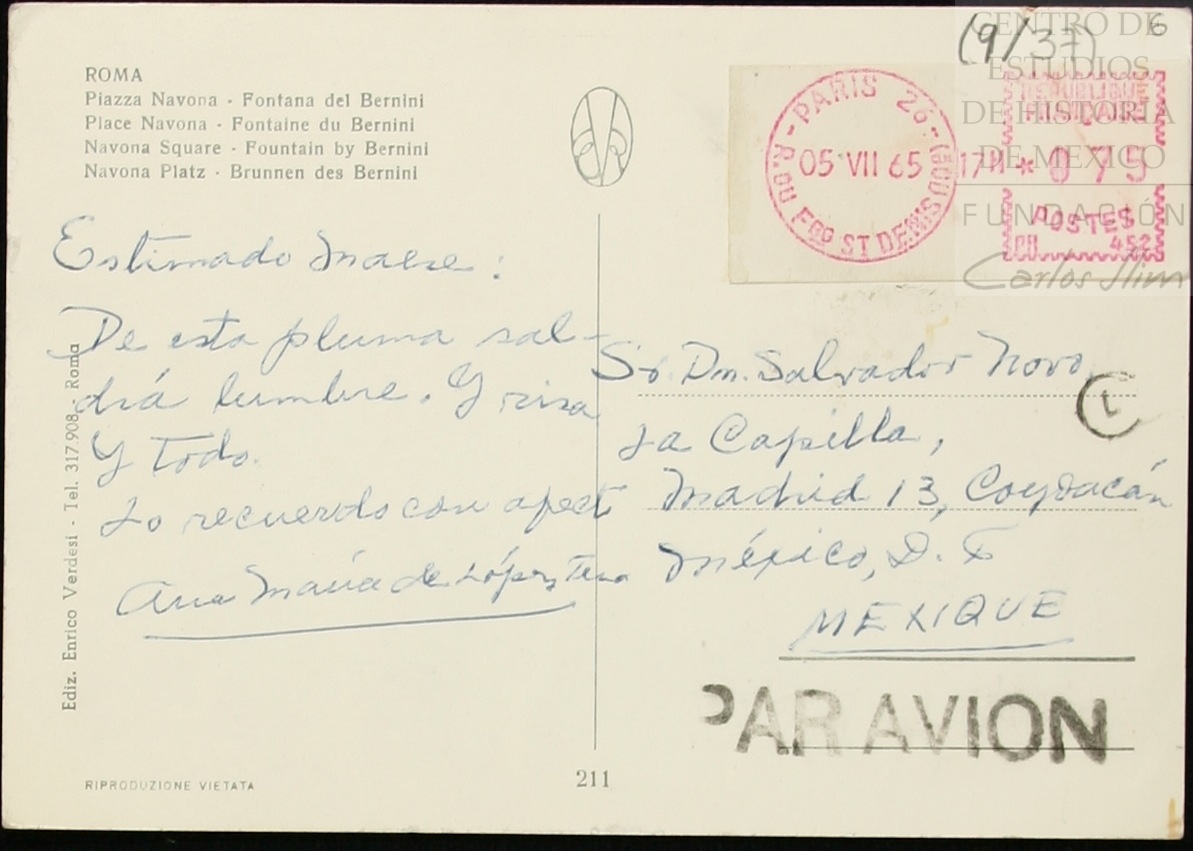 ROMA
Piazza Navona - Fontana del Bernini
Place Navona - Fontaine du Bernini
Navona Square - Fountain by Bernini
Navona Platz - Brunnen des Bernini
Estimado Maese:
De esta pluma sal-
drá lumbre. Y risa
Y todo.
Lo recuerdo con afect
Ana María de López
Ediz. Enrico Verdesi - Tel. 317.908 - Roma
RIPRODUZIONE VIETATA
211
(9/37)
6
PARIS 26
05 VII 65
R. DU FBG ST DENIS (10)
17H * 075
REPUBLIQUE
FRANÇAISE
POSTES
452
CENTRO DE
ESTUDIOS
DE HISTORIA
DE MEXICO
FUNDACIÓN
Carlos Slim
Sr. Dn. Salvador Novo
La Capilla,
Madrid 13, Coyoacán
México, D. F
MEXIQUE
L
PAR AVION